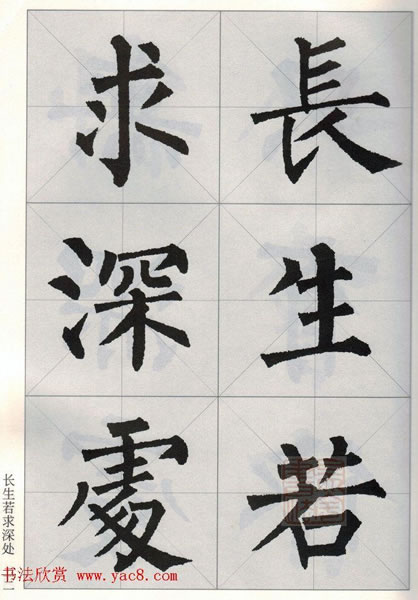 長生若
求深處
长生若求深处 二二
书法欣赏 www.yac8.com